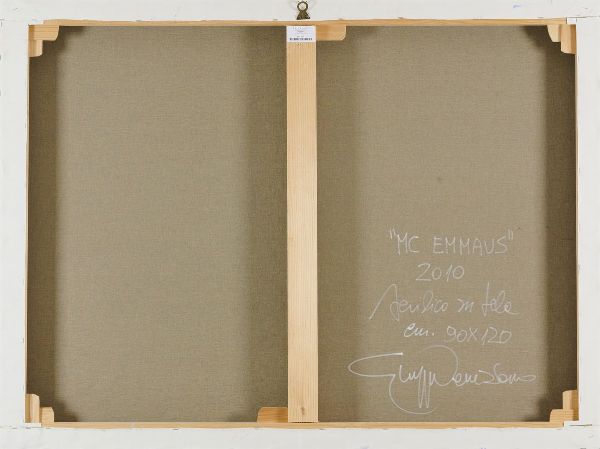 "MC EMMAUS"
2010
Acrilico su tela
cm. 90X120